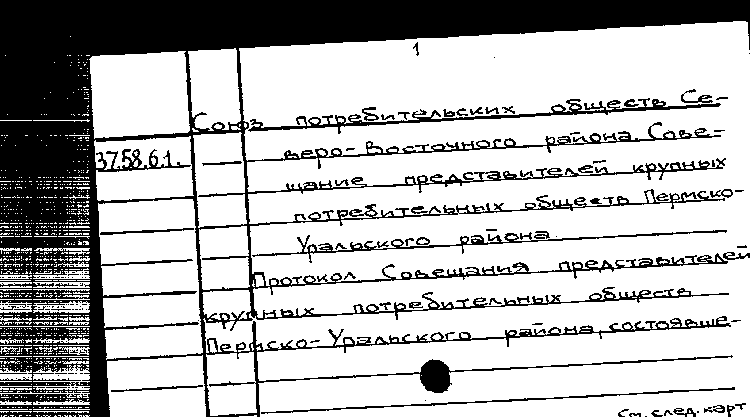 1
Союз потребительских обществ Се-
37.58.61. веро-Восточного района. Сове-
щание представителей крупных
потребительных обществ Пермско-
Уральского района
Протокол Совещания представителей
крупных потребительных обществ
Пермско-Уральского района, состоявше-
См. след. карт